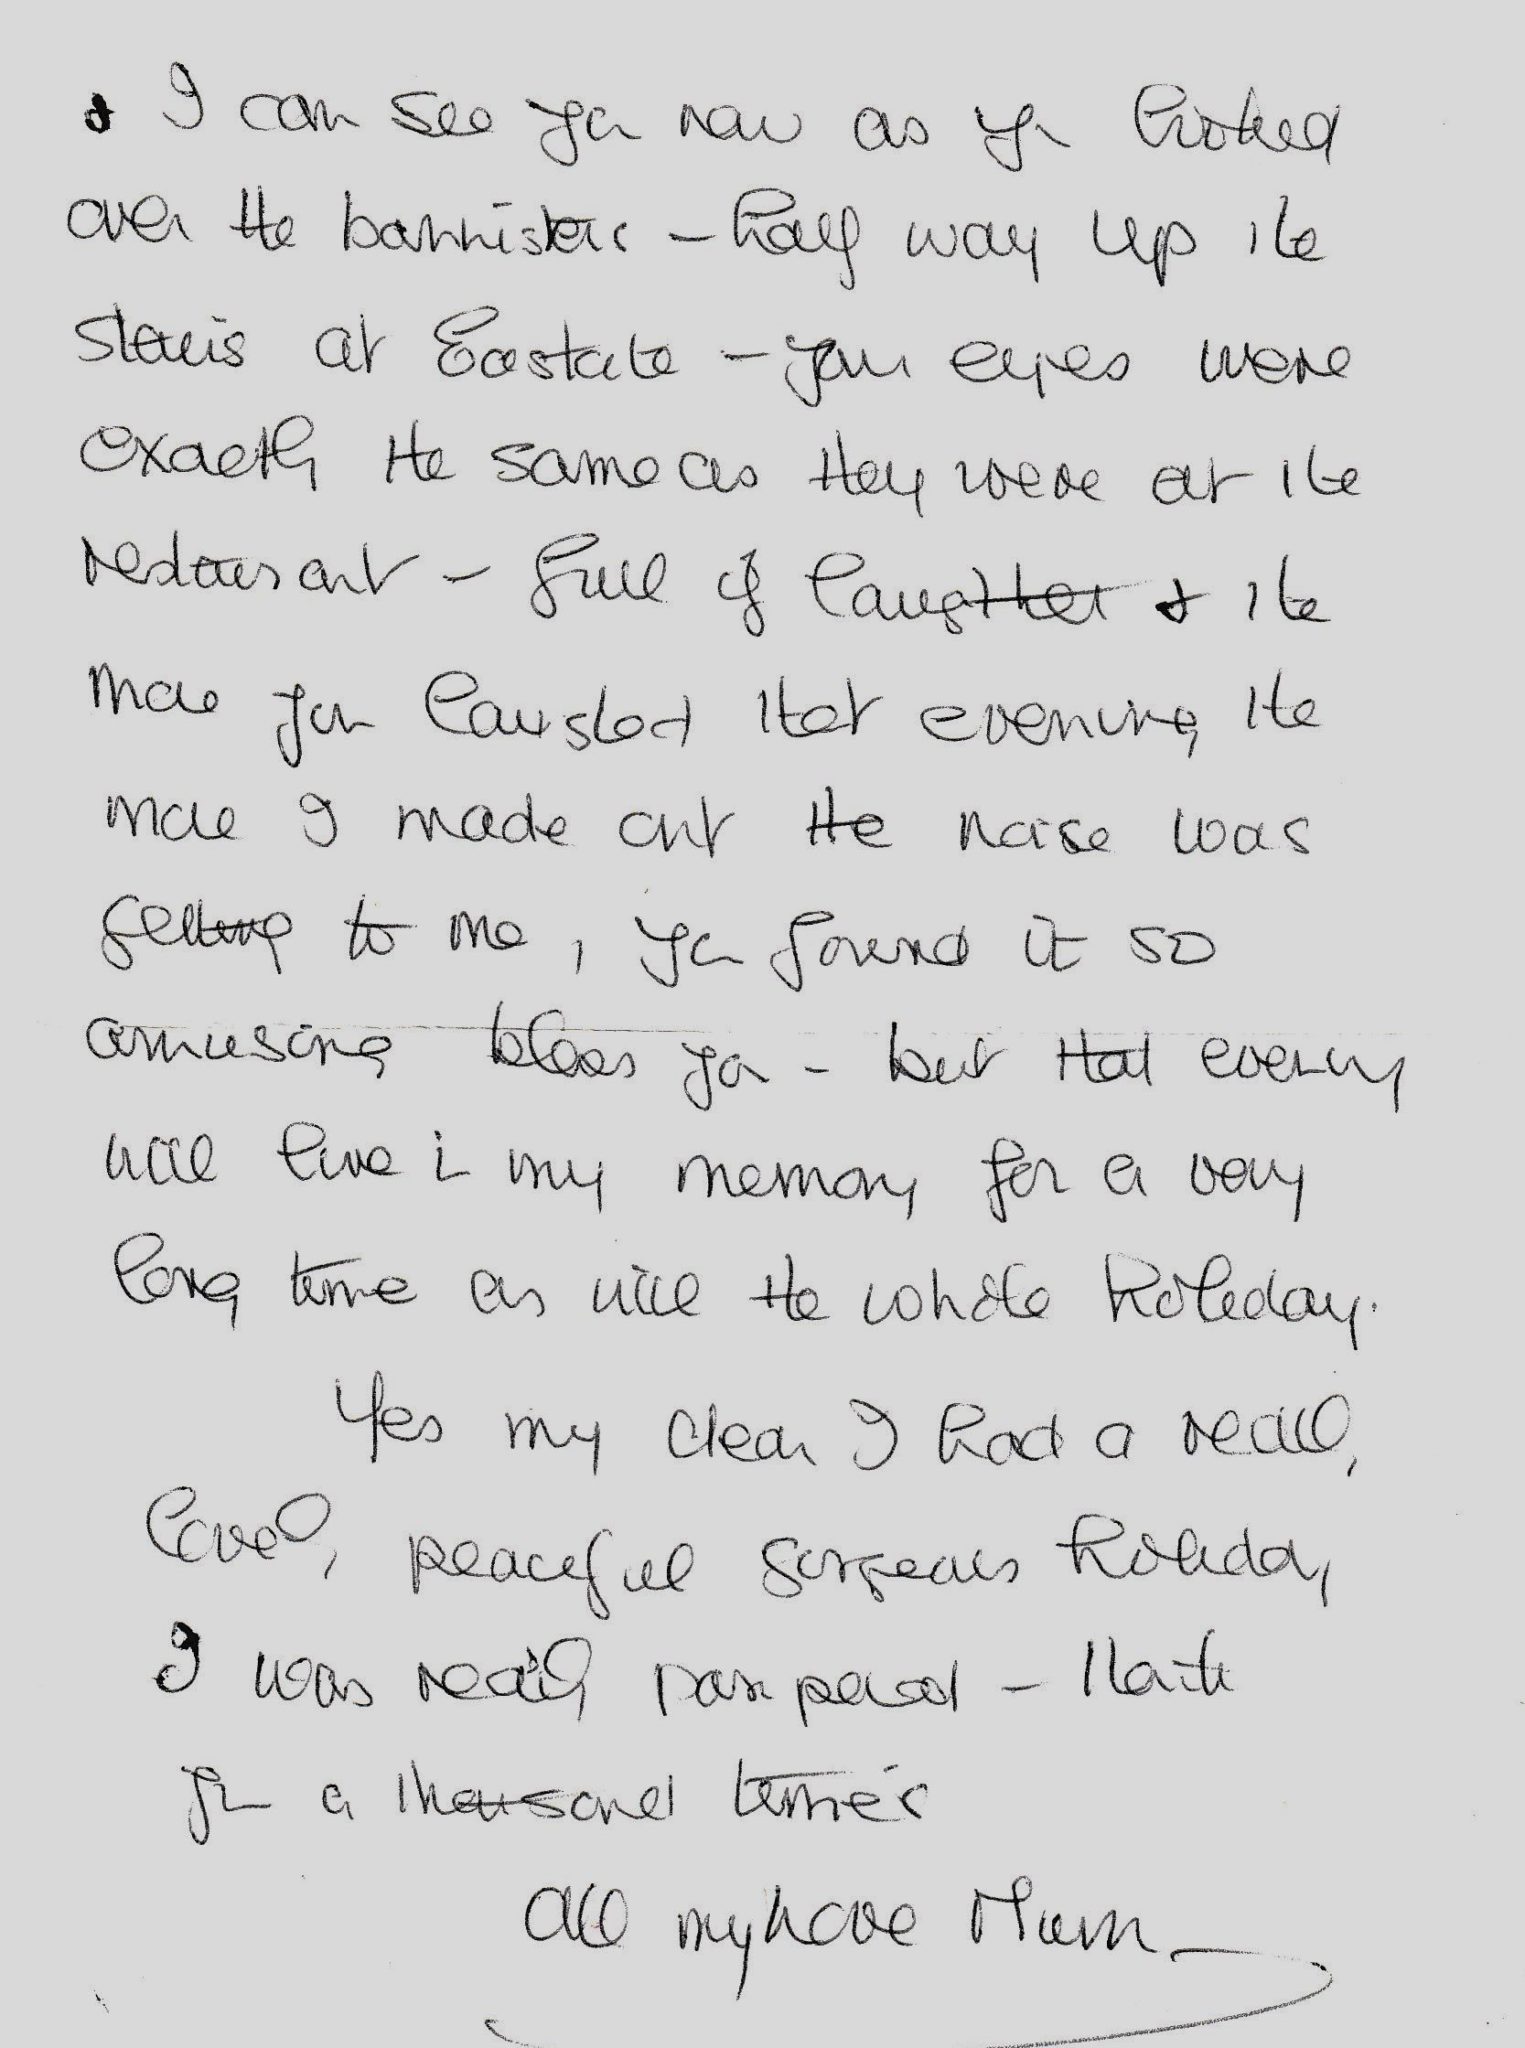 & I can see you now as you looked
over the bannisters - half way up the
stairs at Eastcote - your eyes were
exactly the same as they were at the
restaurant - full of laughter & the
more you laughed that evening the
more I made out the noise was
getting to me, you found it so
amusing bless you - but that evening
will live in my memory for a very
long time as will the whole holiday.
Yes my dear I had a really,
lovely, peaceful gorgeous holiday
I was really pampered - thank
you a thousand times
All my love Mum